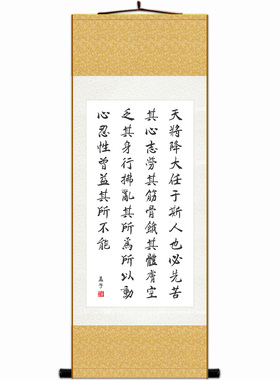 天將降大任于斯人也必先苦
其心志勞其筋骨餓其體膚空
乏其身行拂亂其所為所以動
心忍性曾益其所不能
孟子